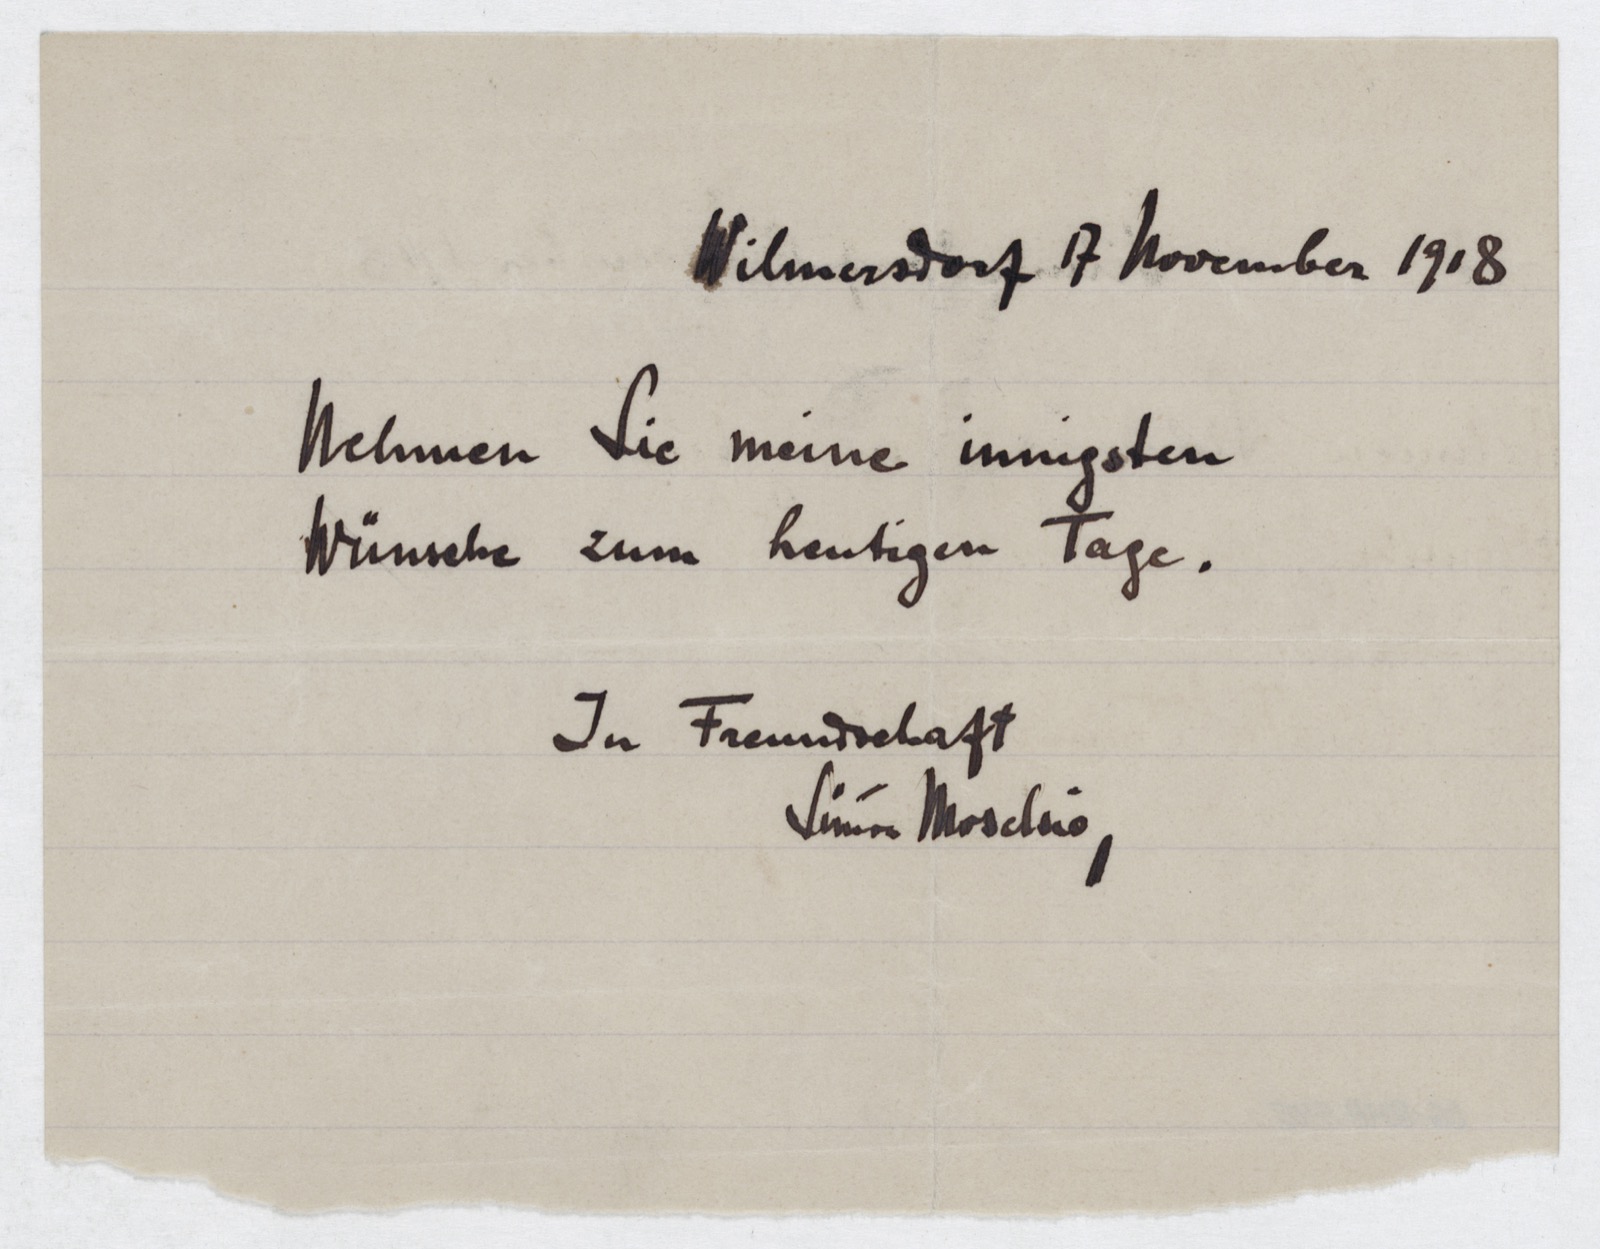 Wilmersdorf 17 November 1918
Nehmen Sie meine innigsten
Wünsche zum heutigen Tage.
In Freundschaft
Simon Moselsio,